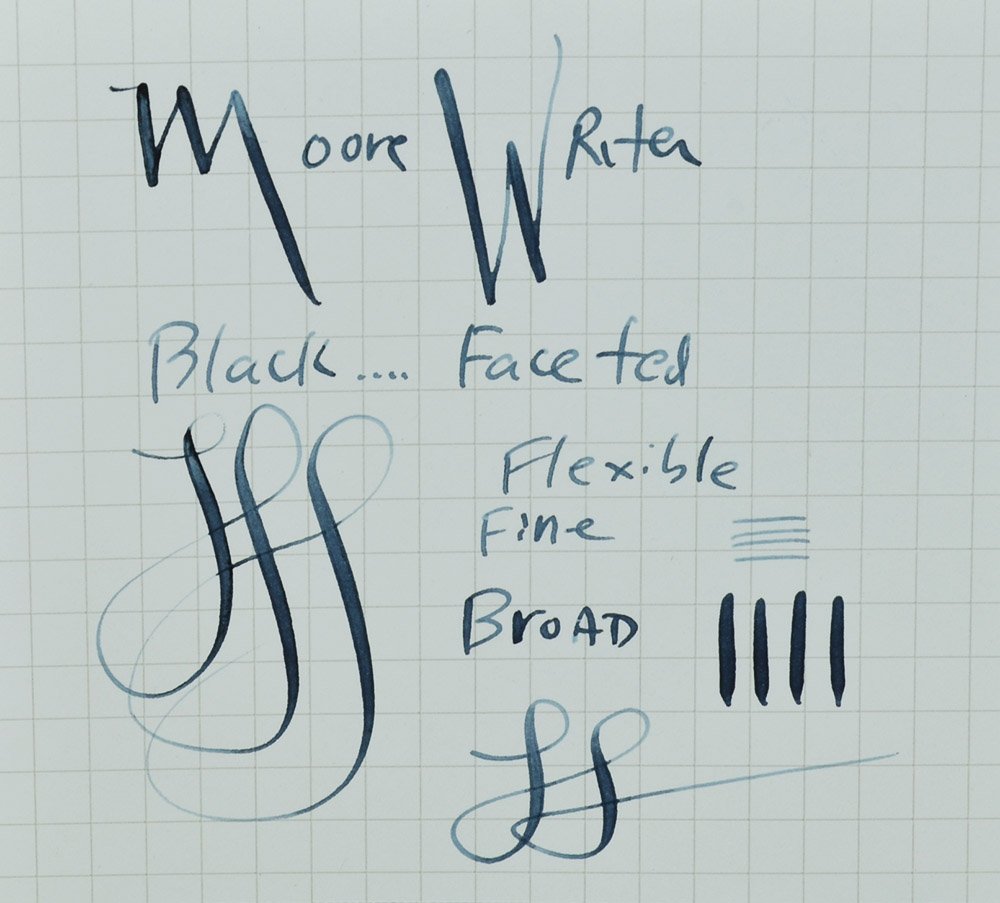 Moore Writer
Black.... Faceted
Flexible
Fine
BROAD